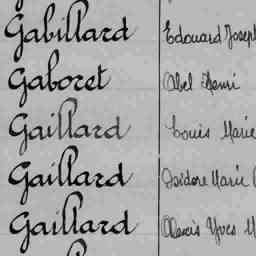 Gabillard Edouard Joseph
Gaboret Abel Henri
Gaillard Louis Marie
Gaillard Isidore Marie
Gaillard Alexis Yves M